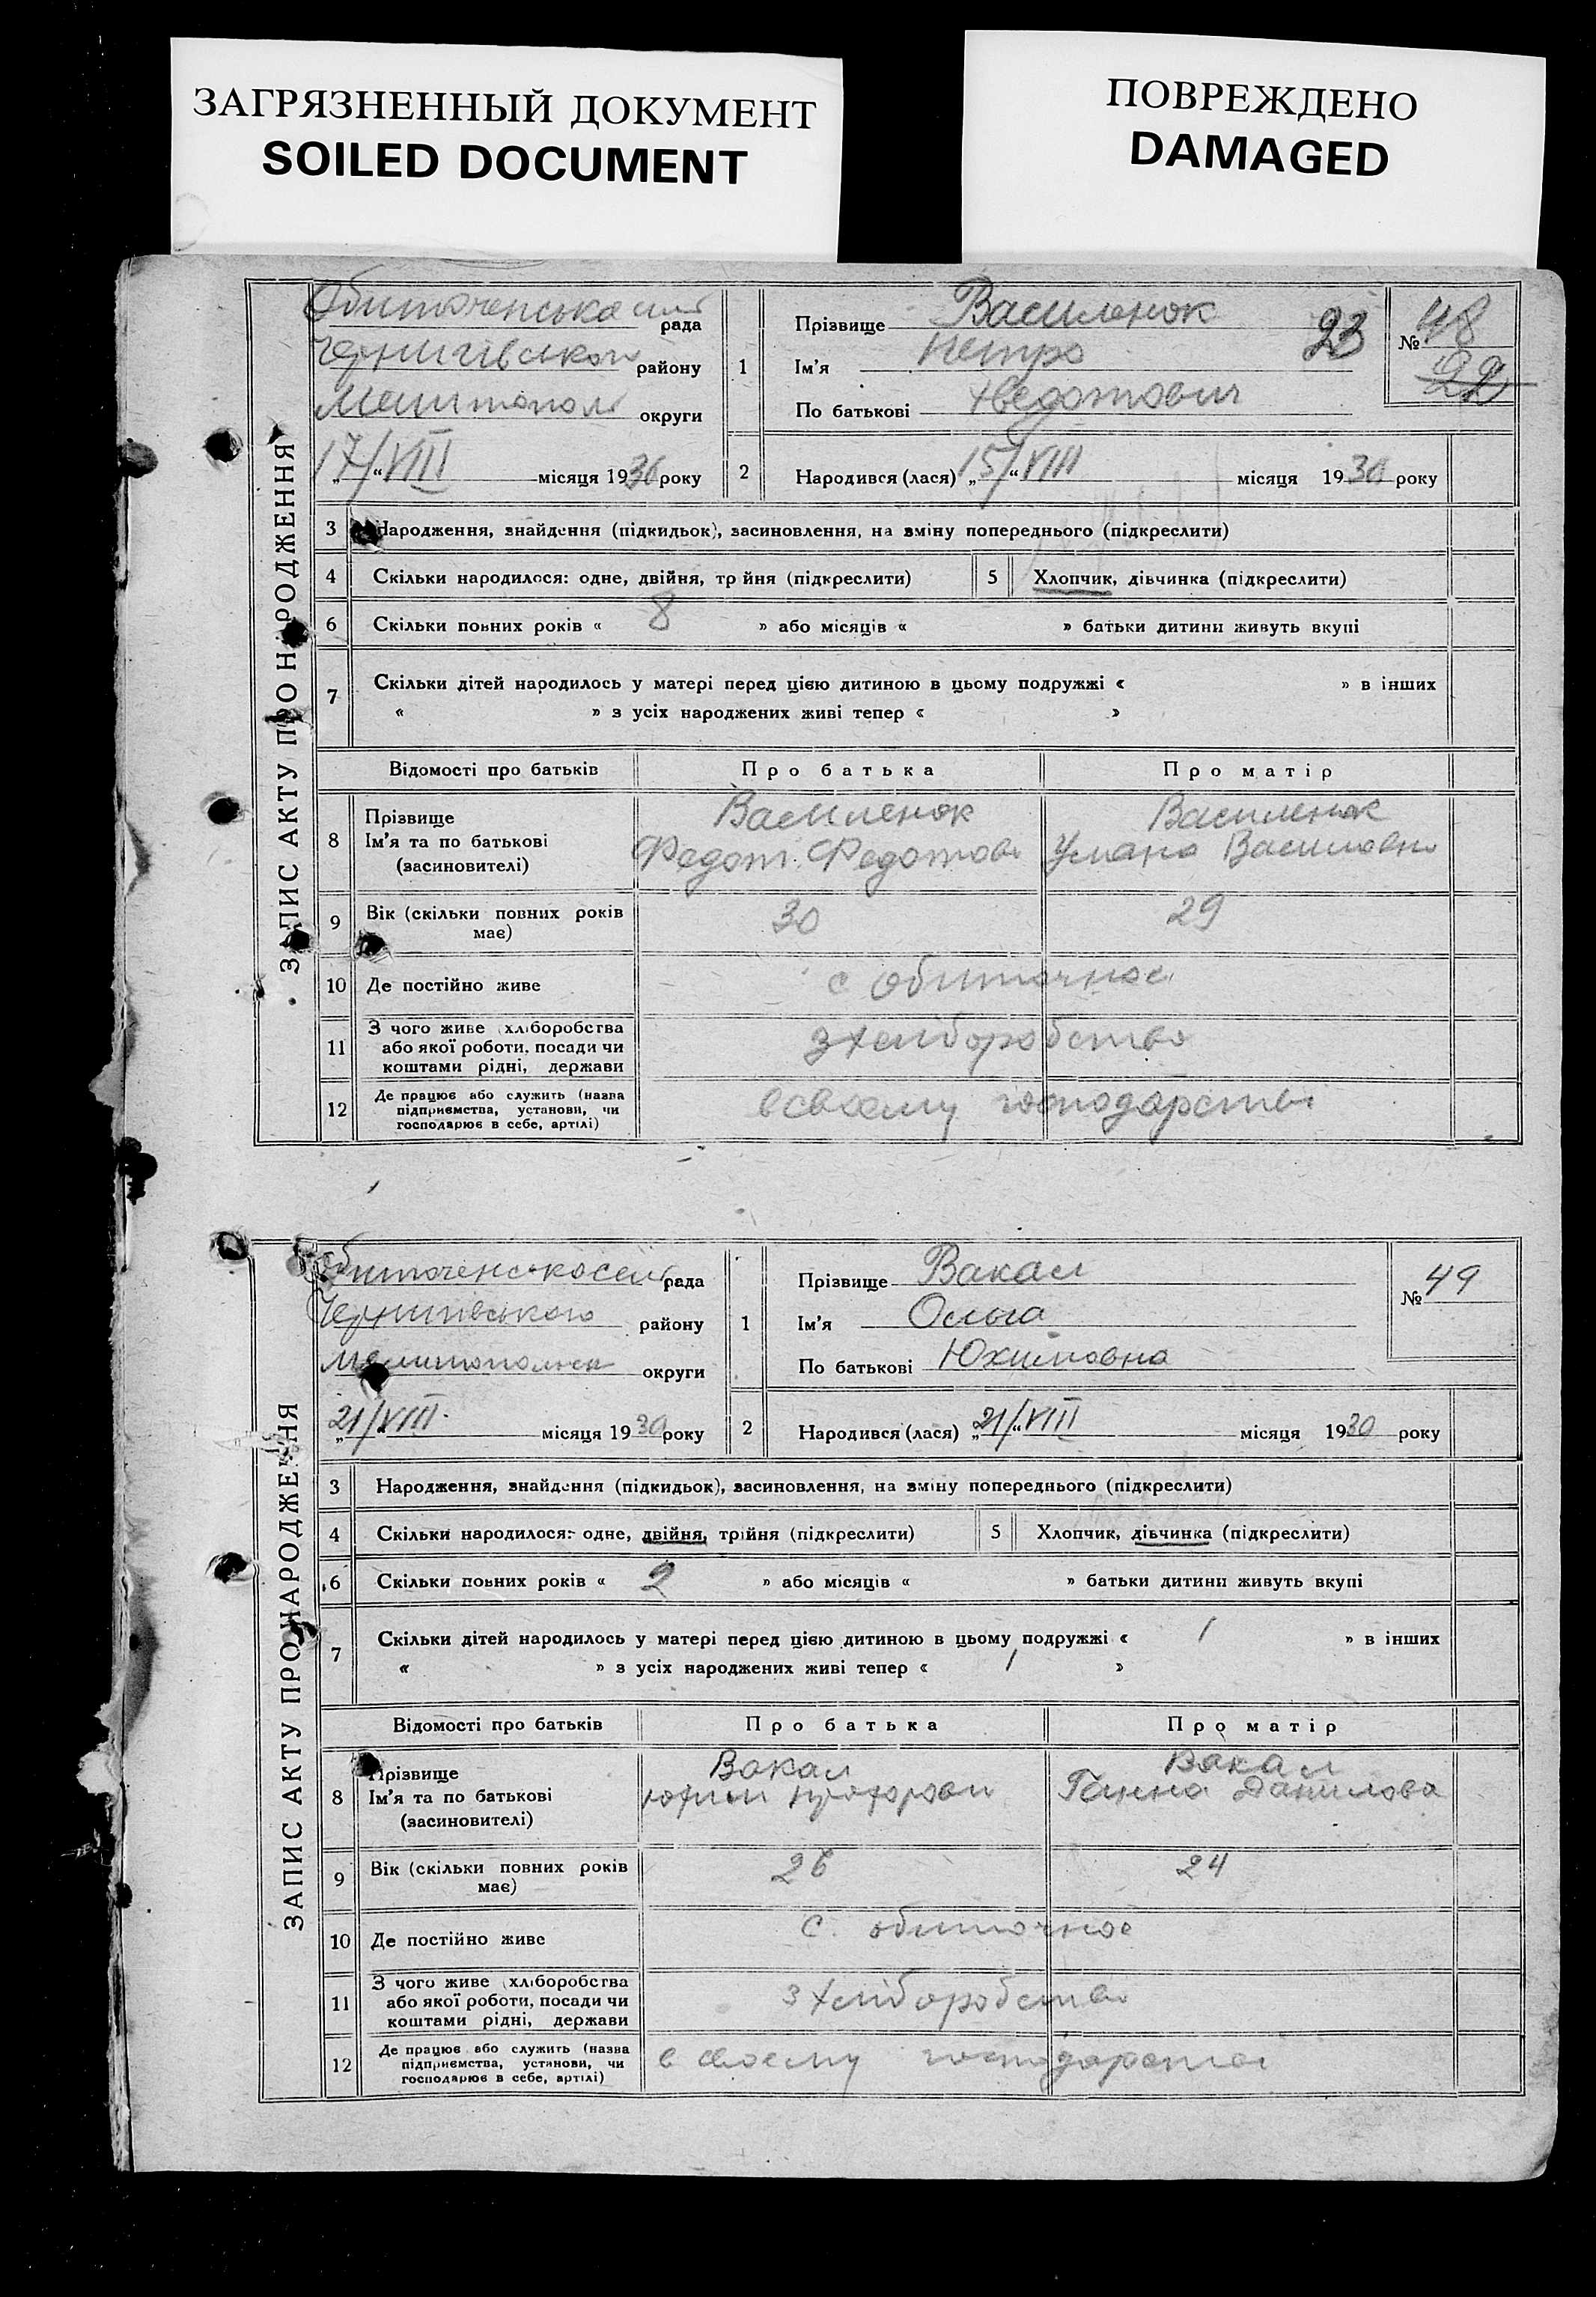 ЗАГРЯЗНЕННЫЙ ДОКУМЕНТ
SOILED DOCUMENT
ПОВРЕЖДЕНО
DAMAGED
ЗАПИС АКТУ ПРО НАРОДЖЕННЯ
Обиточенська сил рада
Чернигівського району
Мелитополь округи
„17/“ VIII місяця 1930 року
1 Прізвище Василенок 23
Ім’я Петро
По батькові Хведотович
№ 48
22
2 Народився (лася) „15/“ VIII місяця 1930 року
3 Народження, знайдення (підкидьок), засиновлення, на зміну попереднього (підкреслити)
4 Скільки народилося: одне, двійня, трійня (підкреслити) 5 Хлопчик, дівчинка (підкреслити)
6 Скільки повних років « 8 » або місяців « » батьки дитини живуть вкупі
7 Скільки дітей народилось у матері перед цією дитиною в цьому подружжі « » в інших
« » з усіх народжених живі тепер « »
Відомості про батьків Про батька Про матір
8 Прізвище Василенок Василенок
Ім’я та по батькові Федот Федотов Василовна
(засиновителі)
9 Вік (скільки повних років 30 29
має)
10 Де постійно живе с Обиточное
11 З чого живе (хліборобства з хліборобства
або якої роботи, посади чи
коштами рідні, держави
12 Де працює або служить (назва в своему господарстві
підприємства, установи, чи
господарює в себе, артілі)
ЗАПИС АКТУ ПРО НАРОДЖЕННЯ
Обиточенськосел рада
Чернигівського району
Мелитопольск округи
„21/“ VIII місяця 1930 року
1 Прізвище Вакал
Ім’я Ольга
По батькові Юхимовна
№ 49
2 Народився (лася) „21/“ VIII місяця 1930 року
3 Народження, знайдення (підкидьок), засиновлення, на зміну попереднього (підкреслити)
4 Скільки народилося: одне, двійня, трійня (підкреслити) 5 Хлопчик, дівчинка (підкреслити)
6 Скільки повних років « 2 » або місяців « » батьки дитини живуть вкупі
7 Скільки дітей народилось у матері перед цією дитиною в цьому подружжі « 1 » в інших
« » з усіх народжених живі тепер « 1 »
Відомості про батьків Про батька Про матір
8 Прізвище Вакал Вакал
Ім’я та по батькові Юхим Прохорови Ганна Данилова
(засиновителі)
9 Вік (скільки повних років 26 24
має)
10 Де постійно живе с. обиточное
11 З чого живе (хліборобства з хліборобства
або якої роботи, посади чи
коштами рідні, держави
12 Де працює або служить (назва в своему господарстві
підприємства, установи, чи
господарює в себе, артілі)